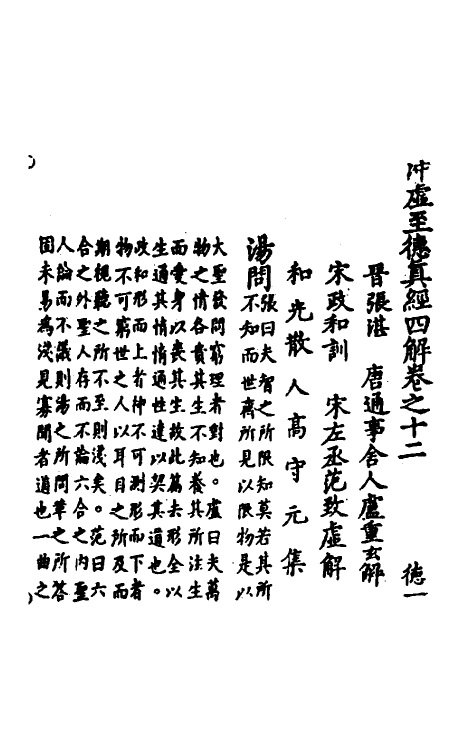 沖虛至德真經四解卷之十二 徳一
晉張湛 唐通事舍人盧重玄解
宋政和訓 宋左丞范致虛解
和光散人高守元集
湯問張曰夫智之所限知莫若其所
不知而世齊所見以限物是以
大聖發問窮理者對也。盧曰夫萬
物之情各貴其生不知養其所注生
而愛身以喪其生故此篇去形全以
生通其情情通性達以契其道也。
政和形而上者神不可測形而下者
物不可窮世之人以耳目之所及而
期視聽之所不至則淺矣。范曰六
合之外聖人存而不論六合之內聖
人論而不議則湯之所問革之所答
固未易為淺見寡聞者道也一曲之